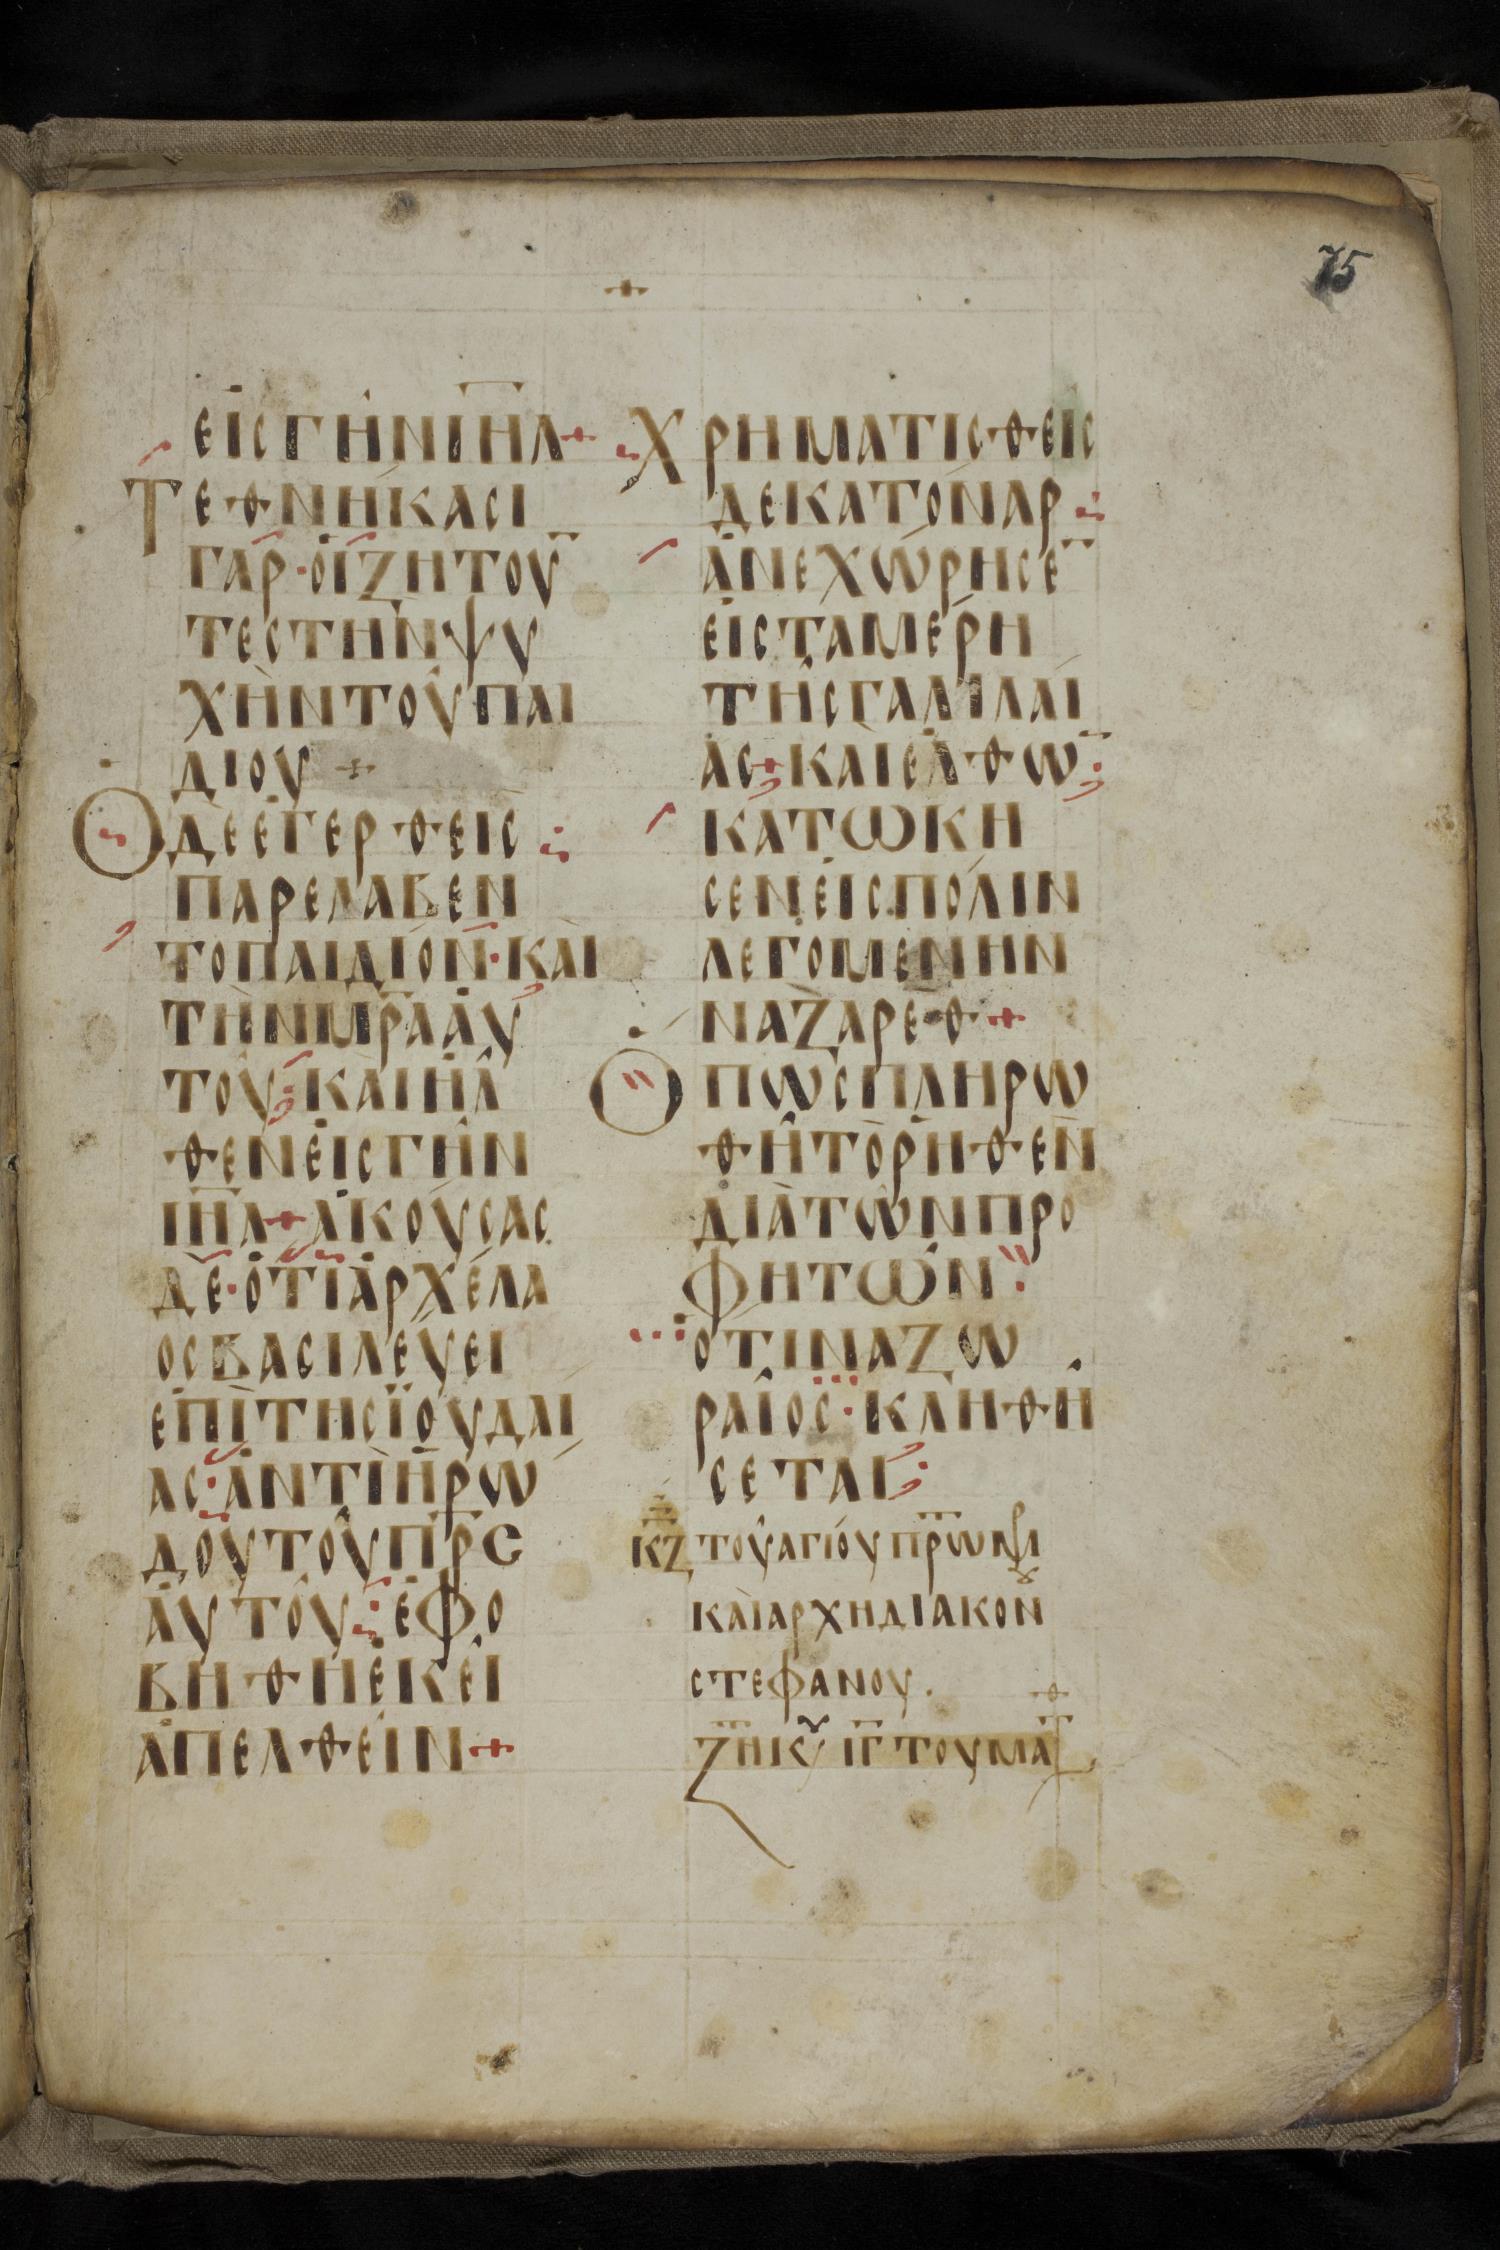 75
ΕΙΣ ΓΗΝ ΙΗΛ
ΤΕΘΝΗΚΑΣΙ
ΓΑΡ· ΟΙ ΖΗΤΟΥ̅
ΤΕΣ ΤΗΝ ΨΥ
ΧΗΝ ΤΟΥ ΠΑΙ
ΔΙΟΥ
Ο ΔΕ ΕΓΕΡΘΕΙΣ
ΠΑΡΕΛΑΒΕΝ
ΤΟ ΠΑΙΔΙΟΝ· ΚΑΙ
ΤΗΝ ΜΡΑ ΑΥ
ΤΟΥ· ΚΑΙ ΗΛ
ΘΕΝ ΕΙΣ ΓΗΝ
ΙΗΛ ΑΚΟΥΣΑΣ
ΔΕ· ΟΤΙ ΑΡΧΕΛΑ
ΟΣ ΒΑΣΙΛΕΥΕΙ
ΕΠΙ ΤΗΣ ΙΟΥΔΑΙ
ΑΣ· ΑΝΤΙ ΗΡΩ
ΔΟΥ ΤΟΥ ΠΡΣ
ΑΥΤΟΥ· ΕΦΟ
ΒΗΘΗ ΕΚΕΙ
ΑΠΕΛΘΕΙΝ
ΧΡΗΜΑΤΙΣΘΕΙΣ
ΔΕ ΚΑΤ ΟΝΑΡ
ΑΝΕΧΩΡΗΣΕ̅
ΕΙΣ ΤΑ ΜΕΡΗ
ΤΗΣ ΓΑΛΙΛΑΙ
ΑΣ· ΚΑΙ ΕΛΘΩ̅
ΚΑΤΩΚΗ
ΣΕΝ ΕΙΣ ΠΟΛΙΝ
ΛΕΓΟΜΕΝΗΝ
ΝΑΖΑΡΕΘ
ΟΠΩΣ ΠΛΗΡΩ
ΘΗ ΤΟ ΡΗΘΕΝ
ΔΙΑ ΤΩΝ ΠΡΟ
ΦΗΤΩΝ·
ΟΤΙ ΝΑΖΩ
ΡΑΙΟΣ· ΚΛΗΘΗ
ΣΕΤΑΙ·
ΚΖ ΤΟΥ ΑΓΙΟΥ
ΚΑΙ ΑΡΧΗΔΙΑΚΟΝ
ΣΤΕΦΑΝΟΥ.
ΖΗ ΚΥ ΙΓ ΤΟΥ ΜΑΤ